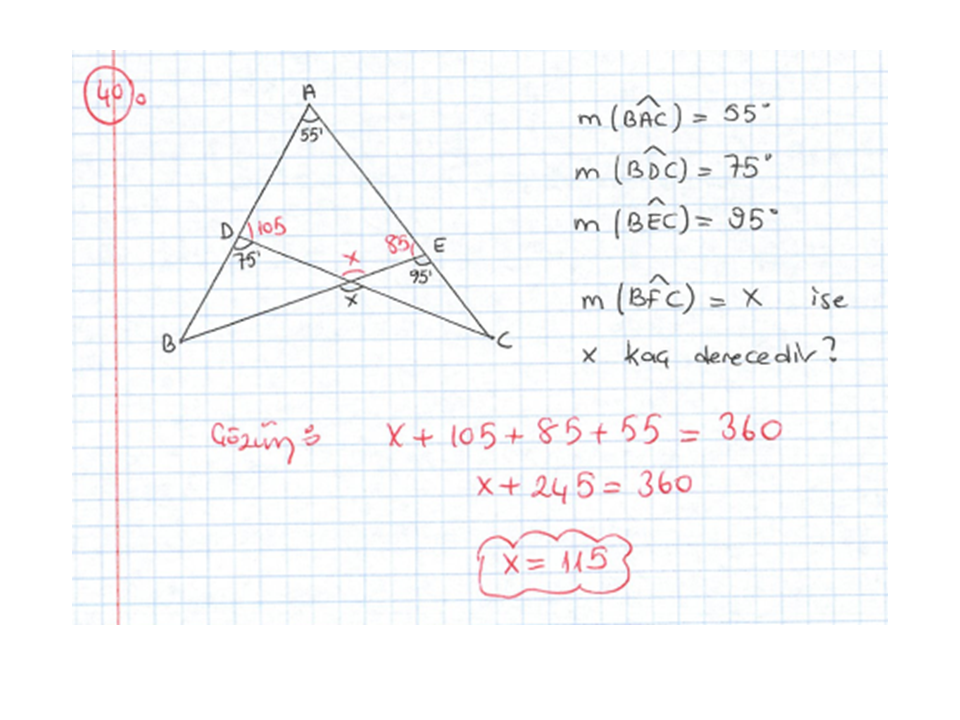 40.
A
55'
D
105
75'
85
E
95'
x
x
B
C
m (BÂC) = 55°
m (BD̂C) = 75°
m (BÊC) = 95°
m (BF̂C) = x ise
x kaç derecedir?
Çözüm :
x + 105 + 85 + 55 = 360
x + 245 = 360
x = 115